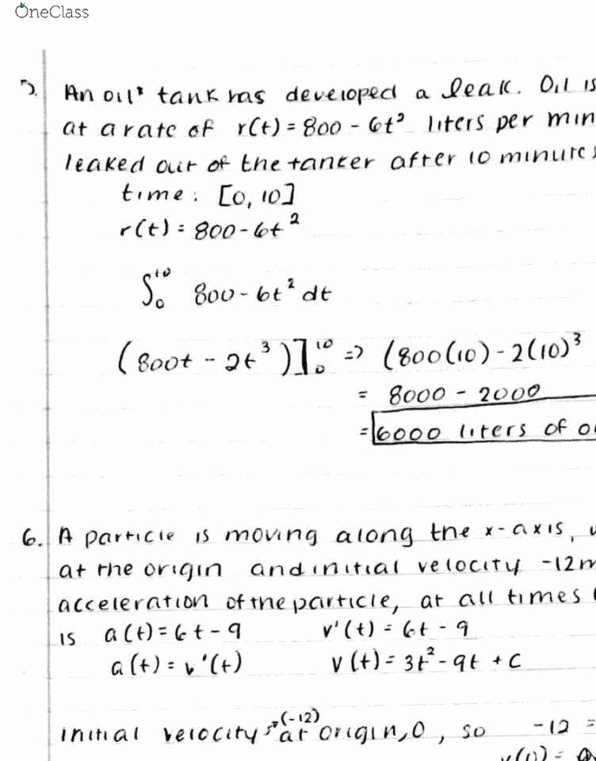 OneClass
5. An oil tank has developed a leak. Oil is
at a rate of r(t) = 800 - 6t² liters per min
leaked out of the tanker after 10 minutes
time: [0, 10]
r(t) = 800 - 6t²
∫₀¹⁰ 800 - 6t² dt
(800t - 2t³)]₀¹⁰ => (800(10) - 2(10)³
= 8000 - 2000
= 6000 liters of o
6. A particle is moving along the x-axis,
at the origin and initial velocity -12m
acceleration of the particle, at all times
is a(t) = 6t - 9 v'(t) = 6t - 9
a(t) = v'(t) v(t) = 3t² - 9t + C
initial velocity (-12) at origin, 0, so -12 =
v(0) =